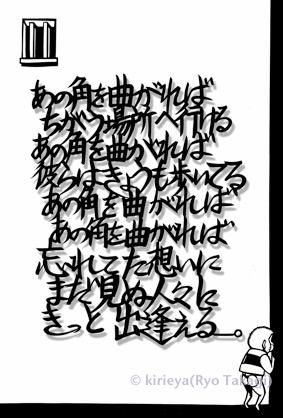 あの角を曲がれば
ちがう場所へ行ける
あの角を曲がれば
彼らはきょうも歩いてる
あの角を曲がれば
あの角を曲がれば
忘れてた想いに
まだ見ぬ人々に
きっと出逢える
© kirieya(Ryo Ta